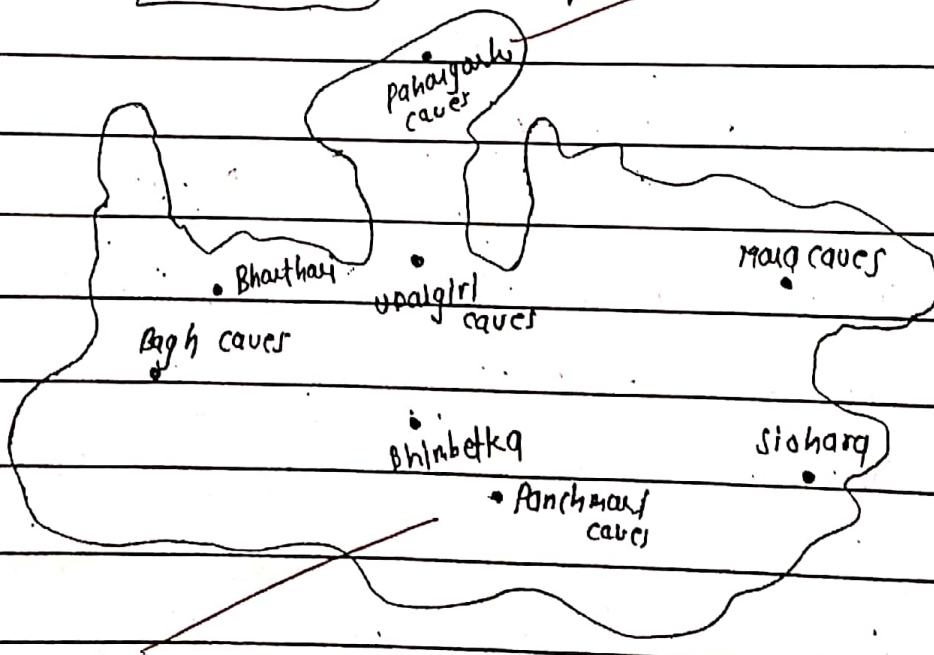 Pahargarh
caves
Bharthari
Udaigiri
caves
Mara caves
Bagh caves
Bhimbetka
Siohara
Panchmari
caves